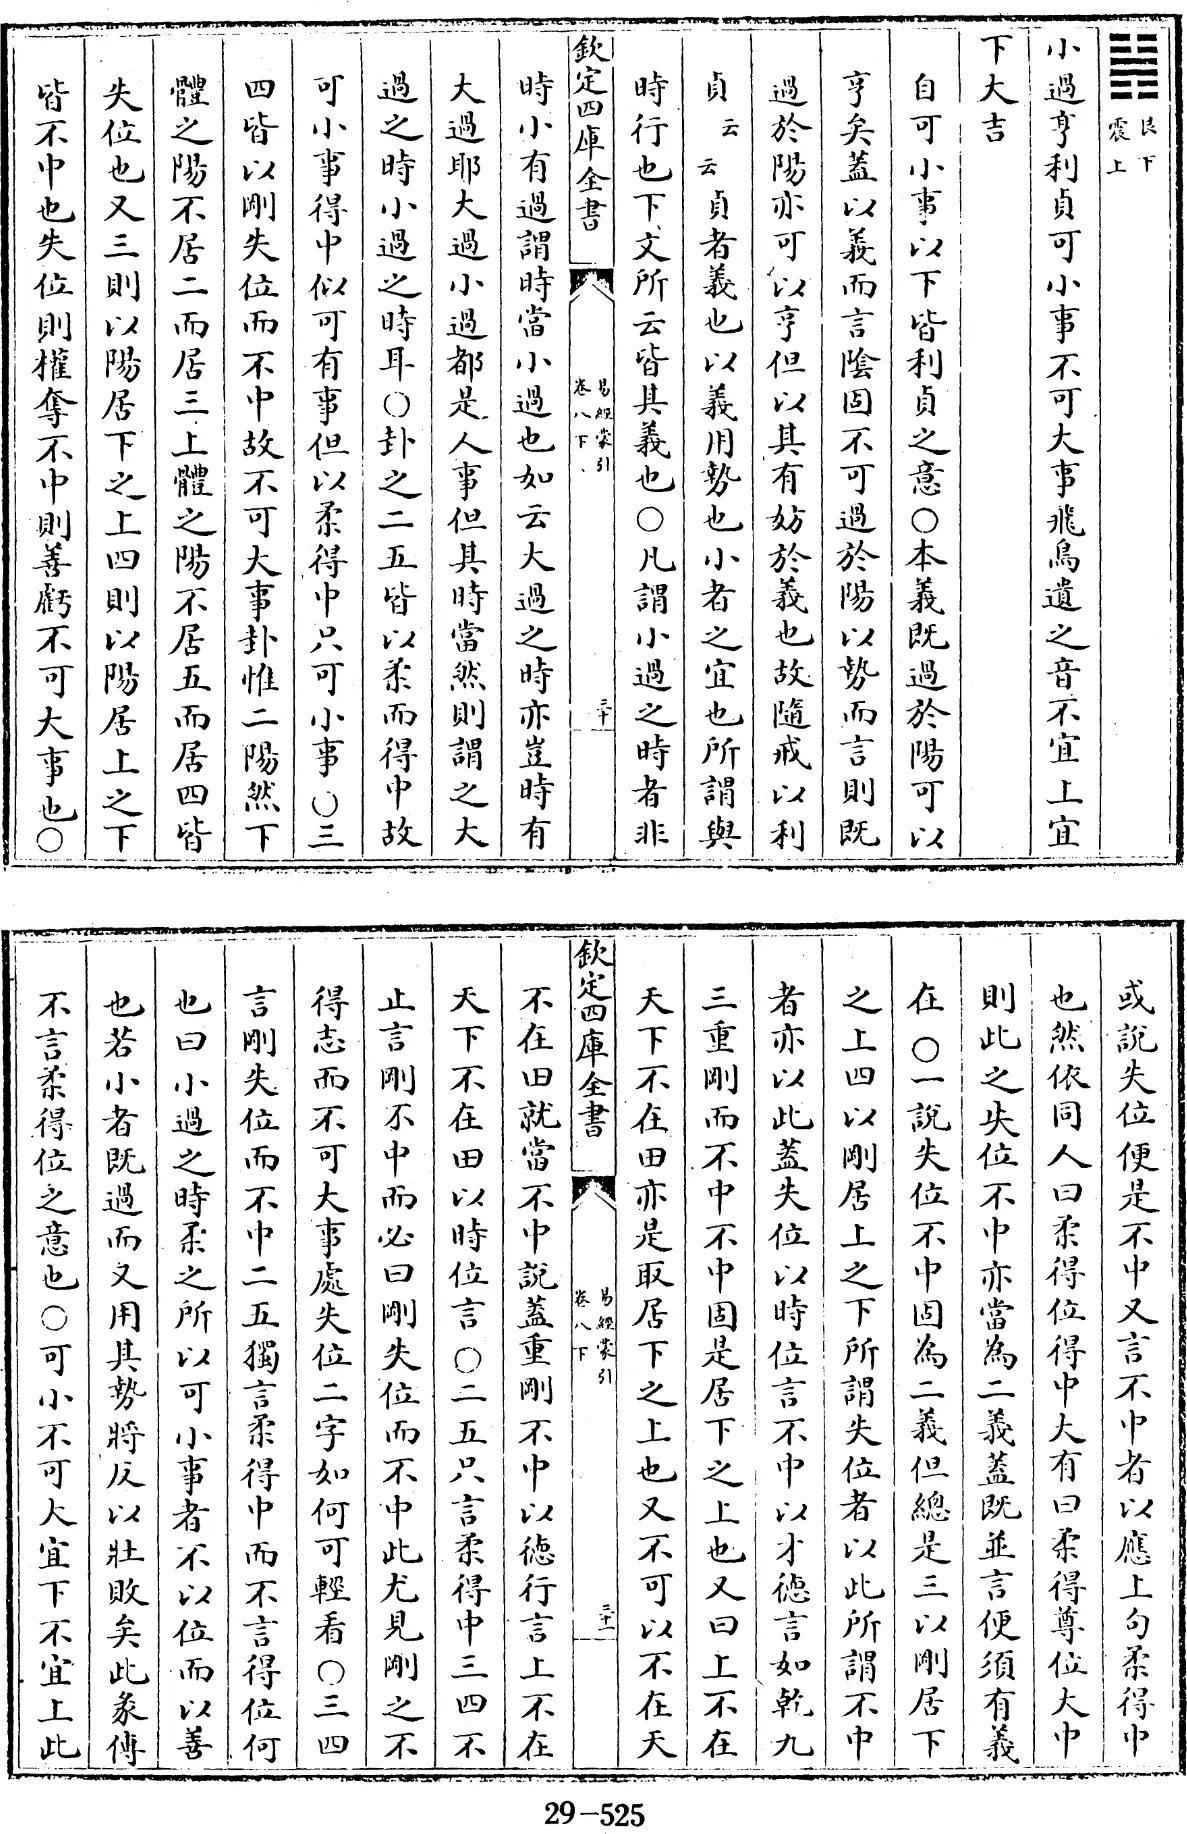 艮下
震上
小過亨利貞可小事不可大事飛鳥遺之音不宜上宜
下大吉
自可小事以下皆利貞之意○本義既過於陽可以
亨矣蓋以義而言陰固不可過於陽以勢而言則既
過於陽亦可以亨但以其有妨於義也故隨戒以利
貞云云貞者義也以義用勢也小者之宜也所謂與
時行也下文所云皆其義也○凡謂小過之時者非
欽定四庫全書
易經蒙引
卷八下
三十
時小有過謂時當小過也如云大過之時亦豈時有
大過耶大過小過都是人事但其時當然則謂之大
過之時小過之時耳○卦之二五皆以柔而得中故
可小事得中似可有事但以柔得中只可小事○三
四皆以剛失位而不中故不可大事卦惟二陽然下
體之陽不居二而居三上體之陽不居五而居四皆
失位也又三則以陽居下之上四則以陽居上之下
皆不中也失位則權奪不中則善虧不可大事也○
或說失位便是不中又言不中者以應上句柔得中
也然依同人曰柔得位得中大有曰柔得尊位大中
則此之失位不中亦當為二義蓋既並言便須有義
在○一說失位不中固為二義但總是三以剛居下
之上四以剛居上之下所謂失位者以此所謂不中
者亦以此蓋失位以時位言不中以才德言如乾九
三重剛而不中不中固是居下之上也又曰上不在
天下不在田亦是取居下之上也又不可以不在天
欽定四庫全書
易經蒙引
卷八下
三十一
不在田就當不中說蓋重剛不中以德行言上不在
天下不在田以時位言○二五只言柔得中三四不
止言剛不中而必曰剛失位而不中此尤見剛之不
得志而不可大事處失位二字如何可輕看○三四
言剛失位而不中二五獨言柔得中而不言得位何
也曰小過之時柔之所以可小事者不以位而以善
也若小者既過而又用其勢將反以壯敗矣此彖傳
不言柔得位之意也○可小不可大宜下不宜上此
29-525